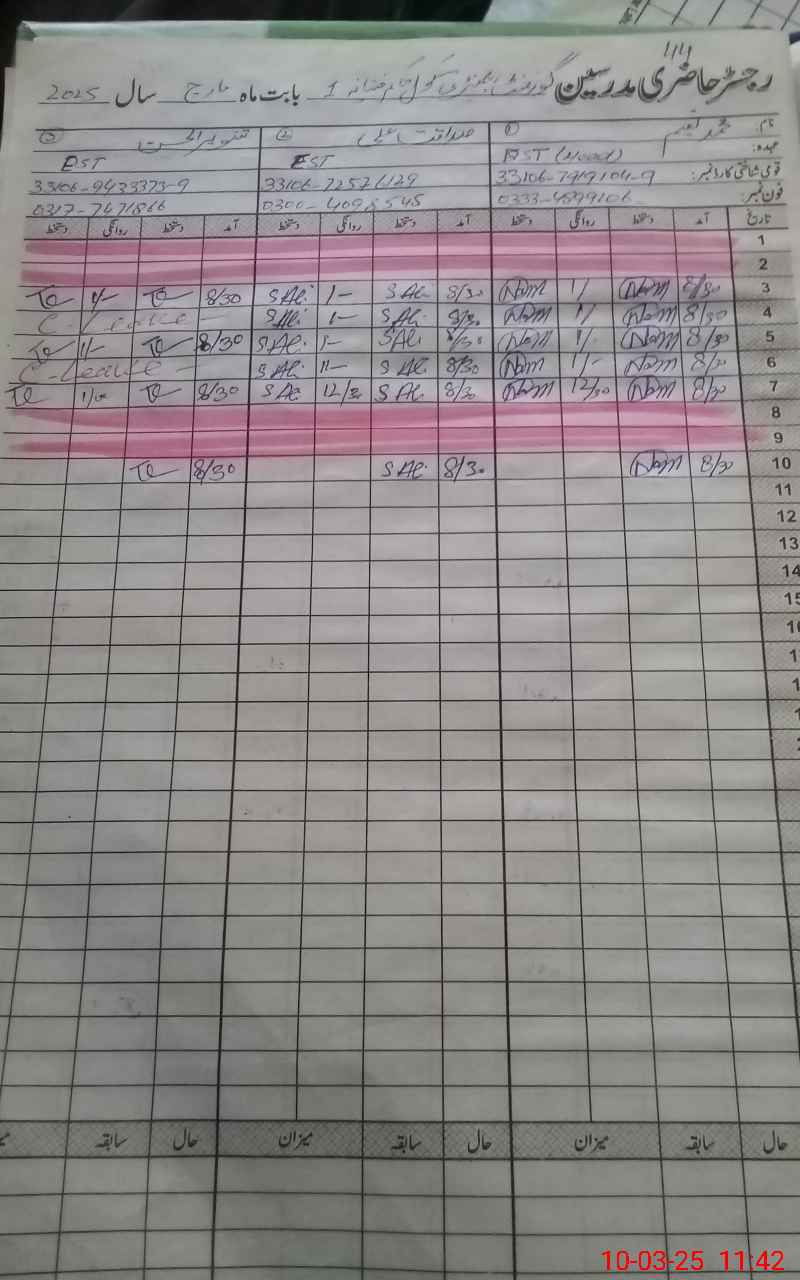 رجسٹر حاضری مدرسین گورنمنٹ 1 بابت ماہ مارچ سال 2025
نام: محمد نعیم ① صداقت علی ② تنویر الحسن ③
عہدہ: PST (Head) EST EST
قومی شناختی کارڈ نمبر: 33106-7919104-9 33106-7257 33106-9433373-9
فون نمبر: 0333-4899106 0300-4098545 0317-7471866
تاریخ آمد دستخط روانگی دستخط آمد دستخط روانگی دستخط آمد دستخط روانگی دستخط
1
2
3 8/30 Naeem 1/ Naeem 8/30 S Ali 1- S Ali 8/30 Te 1/- Te
4 8/30 Naeem 1/ Naeem 8/30 S Ali 1- S Ali C-Leave
5 8/30 Naeem 1/- Naeem 8/30 S Ali 1- S Ali 8/30 Te 1/- Te
6 8/30 Naeem 1/- Naeem 8/30 S Ali 1/- S Ali C-Leave
7 8/30 Naeem 12/30 Naeem 8/30 S Ali 12/30 S Ali 8/30 Te Te
8
9
10 8/30 Naeem 8/30 S Ali 8/30 Te
11
12
13
14
15
16
حال سابقہ میزان حال سابقہ میزان حال سابقہ
10-03-25 11:42